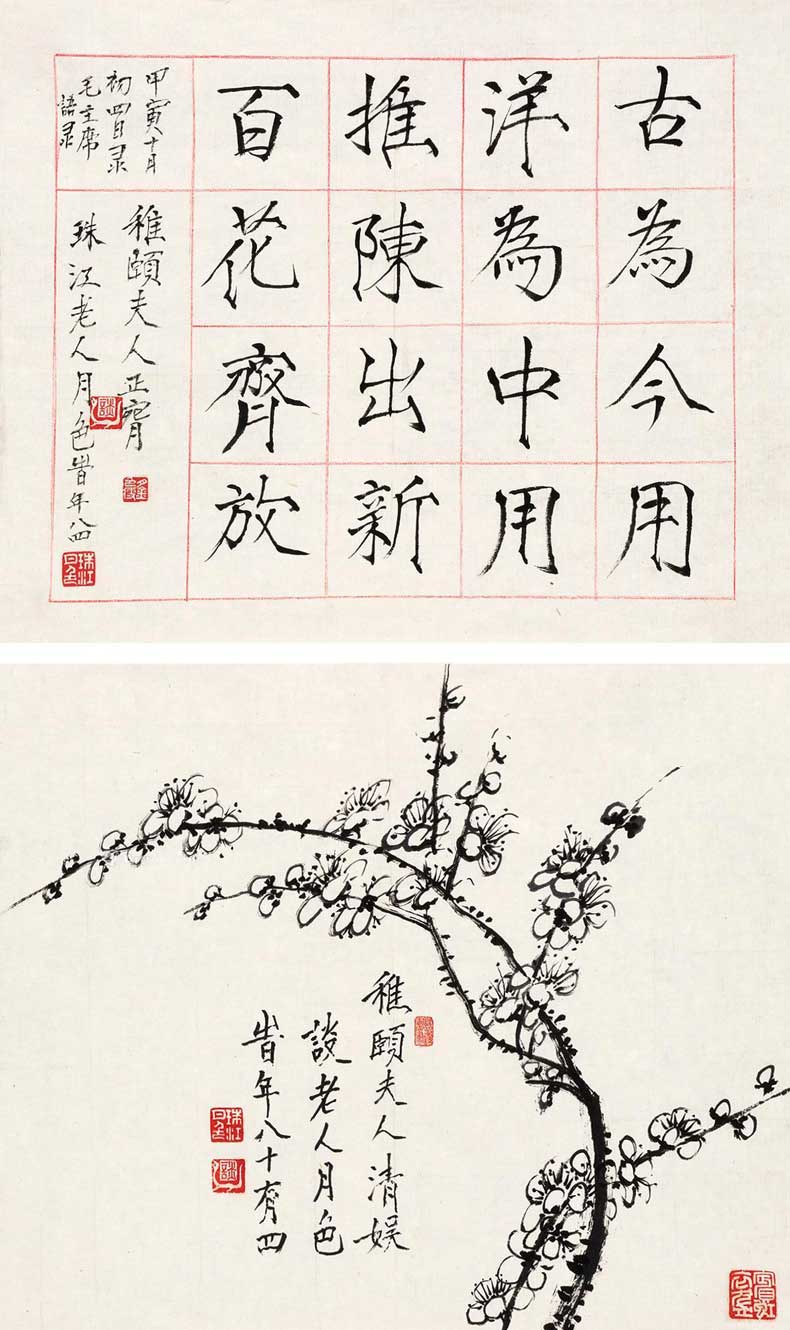 古為今用
洋為中用
推陳出新
百花齊放
甲寅十月
初四日录
毛主席
語录
稚頤夫人正腕
珠江老人月色旹年八四
珠江月色
稚頤夫人清娱
談老人月色
旹年八十有四
珠江月色